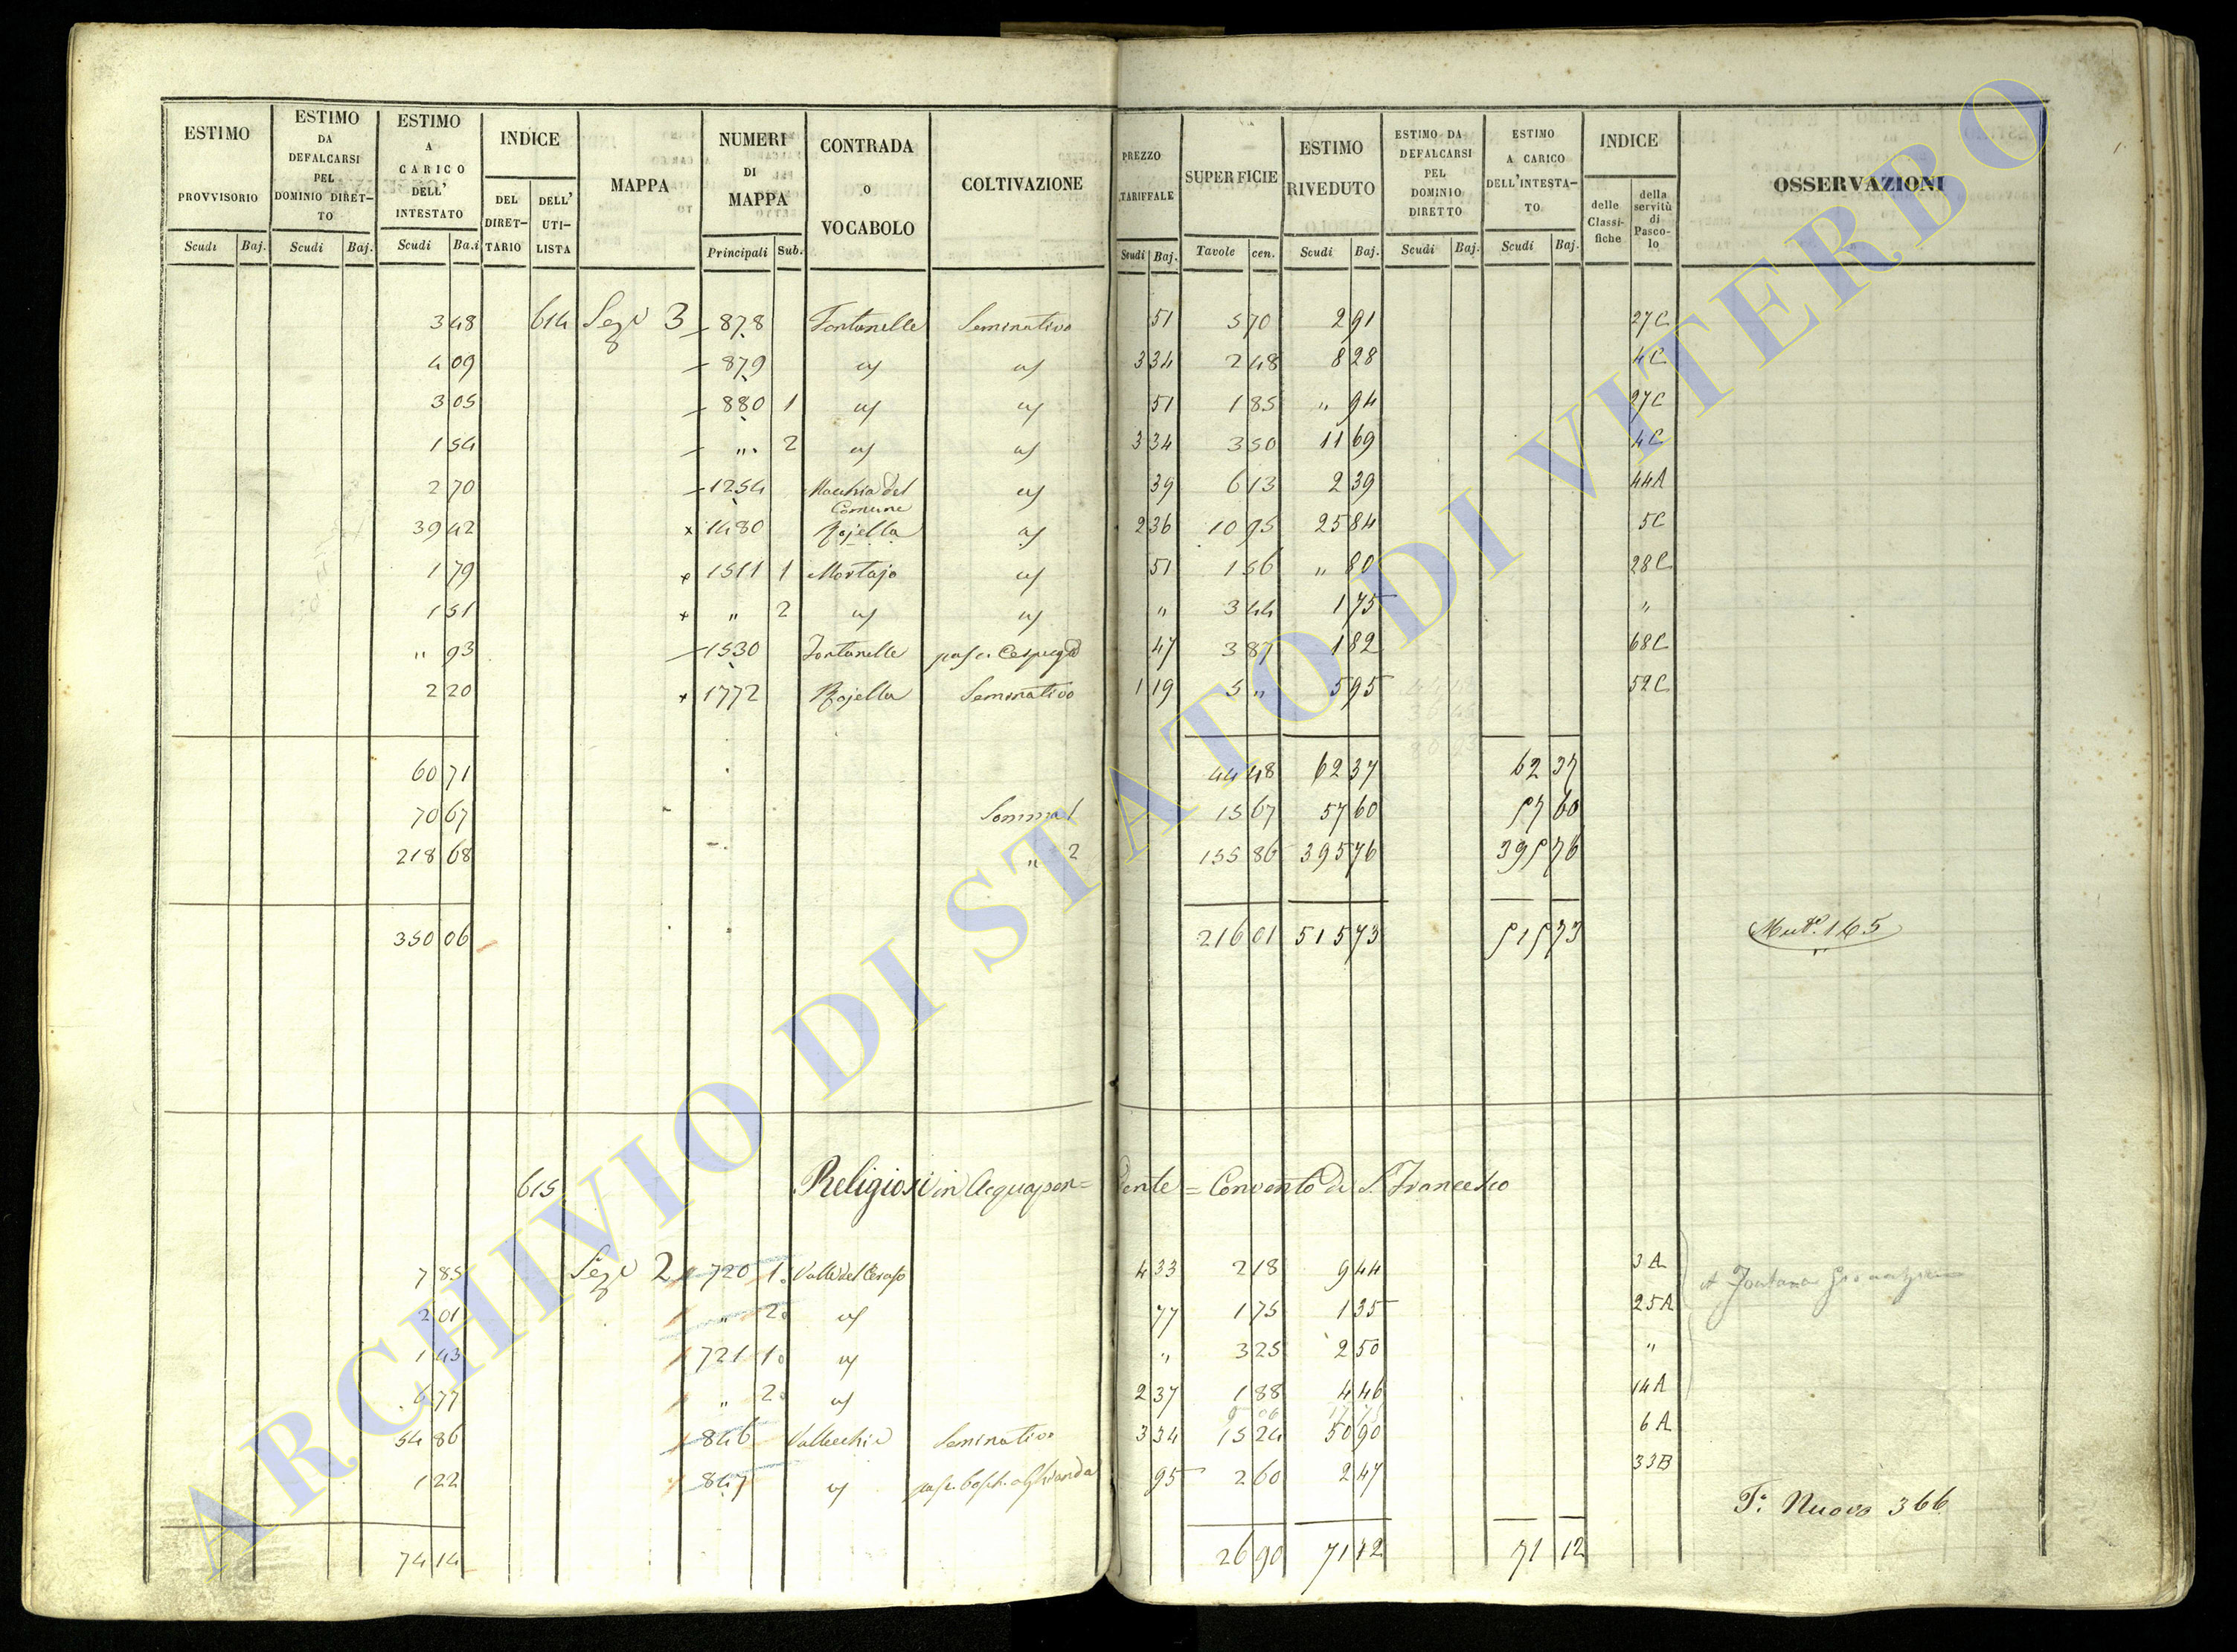 ESTIMO PROVVISORIO Scudi Baj.
ESTIMO DA DEFALCARSI PEL DOMINIO DIRETTO Scudi Baj.
ESTIMO A CARICO DELL' INTESTATO Scudi Ba.i
INDICE DEL DIRETTARIO DELL' UTILISTA
MAPPA
NUMERI DI MAPPA Principali Sub.
CONTRADA O VOCABOLO
COLTIVAZIONE
PREZZO TARIFFALE Scudi Baj.
SUPERFICIE Tavole cen.
ESTIMO RIVEDUTO Scudi Baj.
ESTIMO DA DEFALCARSI PEL DOMINIO DIRETTO Scudi Baj.
ESTIMO A CARICO DELL'INTESTATO Scudi Baj.
INDICE delle Classifiche della servitù di Pascolo
OSSERVAZIONI
3 48 614 Sez.e 3 878 Fontanelle Seminativo 51 5 70 2 91 27C
4 09 879 " " 3 34 2 48 8 28 4C
3 05 880 1 " " 51 1 85 " 94 27C
1 54 " 2 " " 3 34 3 50 11 69 4C
2 70 1254 Macchia del Comune " 39 6 13 2 39 44A
39 42 x 1480 Rojella " 2 36 10 95 25 84 5C
1 79 x 1511 1 Mortajo " 51 1 56 " 80 28C
1 51 x " 2 " " " 3 44 1 75 "
" 93 1530 Fontanelle pasc. Cespugo 47 3 87 1 82 68C
2 20 x 1772 Rojella Seminativo 1 19 5 " 5 95 52C
60 71 44 48 62 37 62 37
70 67 Somma 1 15 67 57 60 57 60
218 68 " 2 155 86 395 76 395 76
350 06 216 01 515 73 515 73 Mut.e 145
615 Religiosi in Acquapen=dente = Convento di S. Francesco
7 85 Sez.e 2 720 1 Valle del Ceraso 4 33 2 18 9 44 3A
2 01 " 2 " 77 1 75 1 35 25A
A Fontana
1 43 721 1 " " 3 25 2 50 "
6 77 " 2 " 2 37 1 88 4 46 14A
54 86 846 Vallecchie Seminativo 3 34 15 24 50 90 6A
1 22 847 " pasc. bosch. a Ghianda 95 2 60 2 47 33B
T: Nuovo 366
74 14 26 90 71 12 71 12
ARCHIVIO DI STATO DI VITERBO